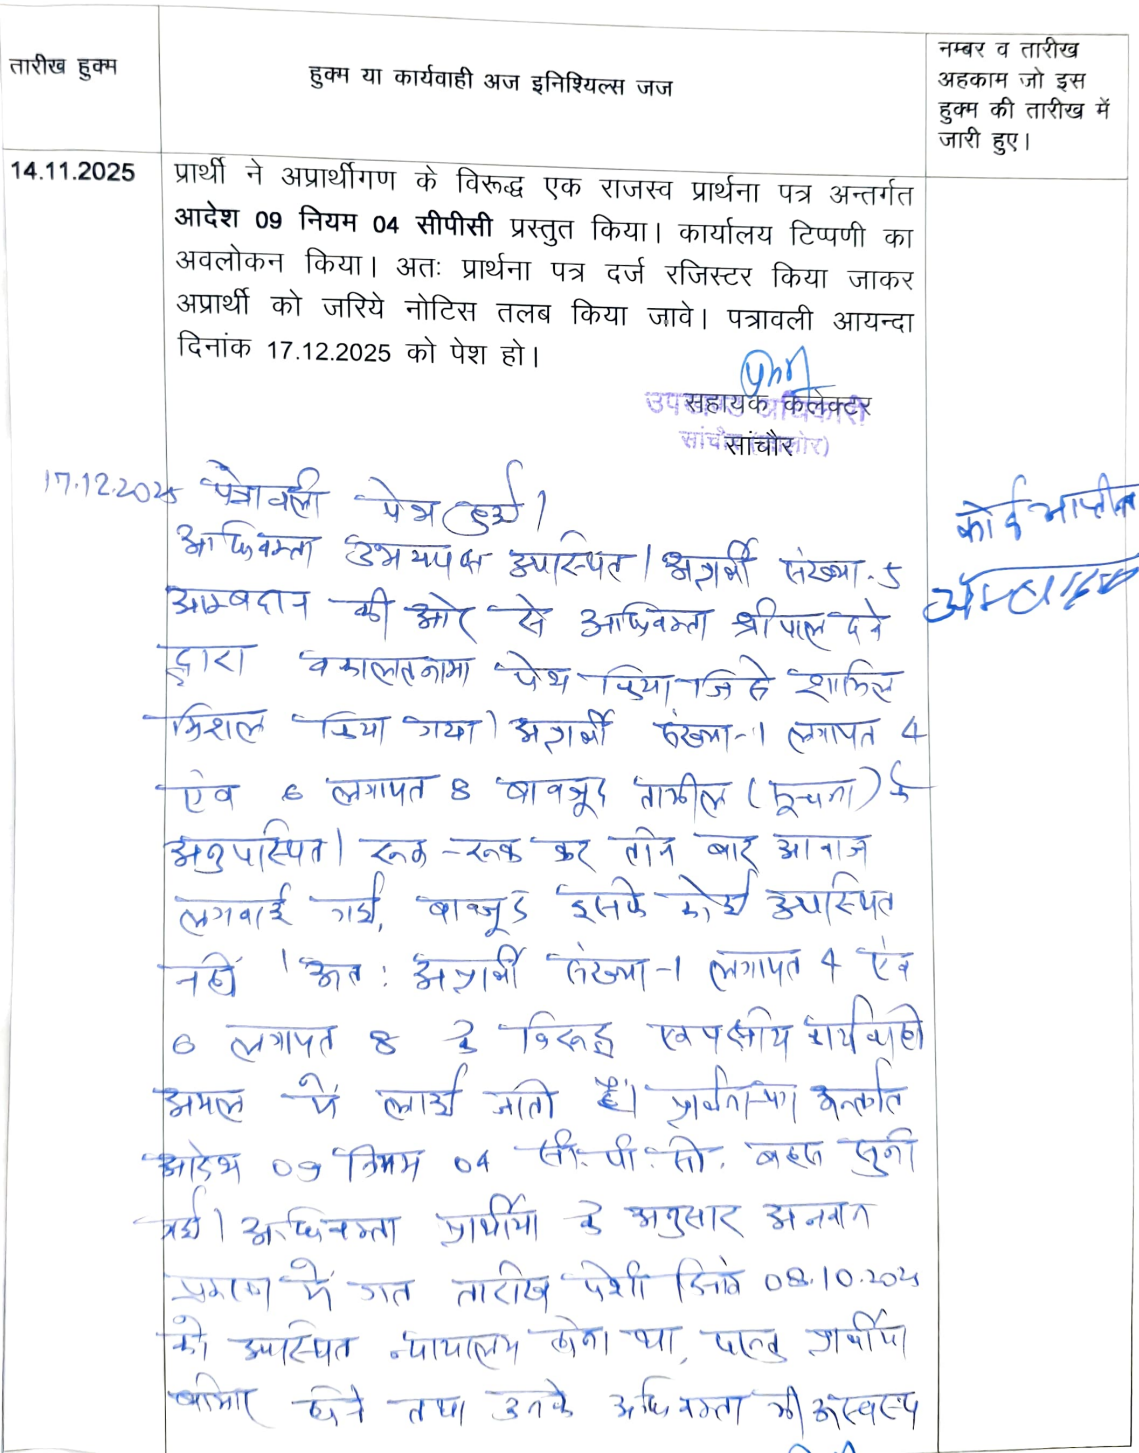 तारीख हुक्म
हुक्म या कार्यवाही अज इनिश्यिल्स जज
नम्बर व तारीख
अहकाम जो इस
हुक्म की तारीख में
जारी हुए।
14.11.2025
प्रार्थी ने अप्रार्थीगण के विरूद्ध एक राजस्व प्रार्थना पत्र अन्तर्गत
आदेश 09 नियम 04 सीपीसी प्रस्तुत किया। कार्यालय टिप्पणी का
अवलोकन किया। अतः प्रार्थना पत्र दर्ज रजिस्टर किया जाकर
अप्रार्थी को जरिये नोटिस तलब किया जावे। पत्रावली आयन्दा
दिनांक 17.12.2025 को पेश हो।
सहायक कलेक्टर
सांचौर
उपखण्ड अधिकारी
सांचौर (जालोर)
17.12.2025 पत्रावली पेश हुई।
अधिवक्ता उभयपक्ष उपस्थित। अप्रार्थी संख्या-5
आम्बदान की ओर से अधिवक्ता श्रीपाल दवे
द्वारा वकालतनामा पेश किया जिसे शामिल
मिशल किया गया। अप्रार्थी संख्या-1 लगायत 4
एंव 6 लगायत 8 बावजूद तामील (सूचना) के
अनुपस्थित। रूक-रूक कर तीन बार आवाज
लगवाई गई, बावजूद इसके कोई उपस्थित
नहीं। अत: अप्रार्थी संख्या-1 लगायत 4 एंव
6 लगायत 8 के विरूद्ध एकपक्षीय कार्यवाही
अमल में लाई जाती है। प्रार्थना-पत्र अन्तर्गत
आदेश 09 नियम 04 सी.पी.सी. बहस सुनी
गई। अधिवक्ता प्रार्थीया के अनुसार अनवान
प्रकरण में गत तारीख पेशी दिनांक 08.10.2025
को उपस्थित न्यायालय होना था, परन्तु प्रार्थीया
बीमार होने तथा उनके अधिवक्ता की अस्वस्थ
कोई